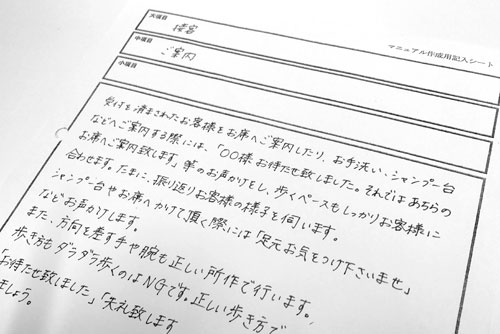 マニュアル作成用記入シート
大項目
接客
中項目
ご案内
小項目
受付を済まされたお客様をお席へご案内したり、お手洗い、シャンプー台
などへご案内する際には、「〇〇様お待たせ致しました。それではあちらの
お席へご案内致します。」等のお声かけをし、歩くペースもしっかりお客様に
合わせます。たまに、振り返りお客様の様子を伺います。
シャンプー台やお席へかけて頂く際には「足元お気をつけ下さいませ」
などお声かけします。
また、方向を差す手や腕も正しい所作で行います。
歩き方もダラダラ歩くのはNGです。正しい歩き方で
「お待たせ致しました」「失礼致します
ましょう。